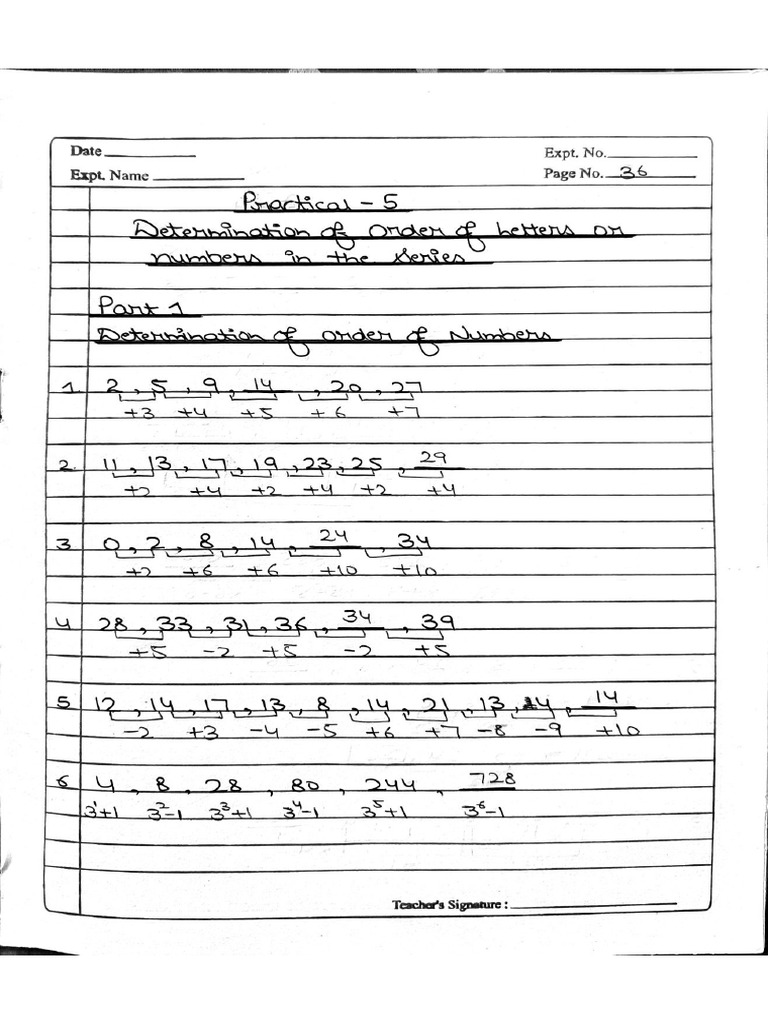 Date
Expt. No.
Expt. Name
Page No. 36
Practical - 5
Determination of order of letters or
numbers in the series
Part 1
Determination of order of Numbers
1. 2, 5, 9, 14, 20, 27
+3 +4 +5 +6 +7
2. 11, 13, 17, 19, 23, 25, 29
+2 +4 +2 +4 +2 +4
3 0, 2, 8, 14, 24, 34
+2 +6 +6 +10 +10
4 28, 33, 31, 36, 34, 39
+5 -2 +5 -2 +5
5 12, 14, 17, 13, 8, 14, 21, 13, 4, 14
-2 +3 -4 -5 +6 +7 -8 -9 +10
6 4, 8, 28, 80, 244, 728
3¹+1 3²-1 3³+1 3⁴-1 3⁵+1 3⁶-1
Teacher's Signature :